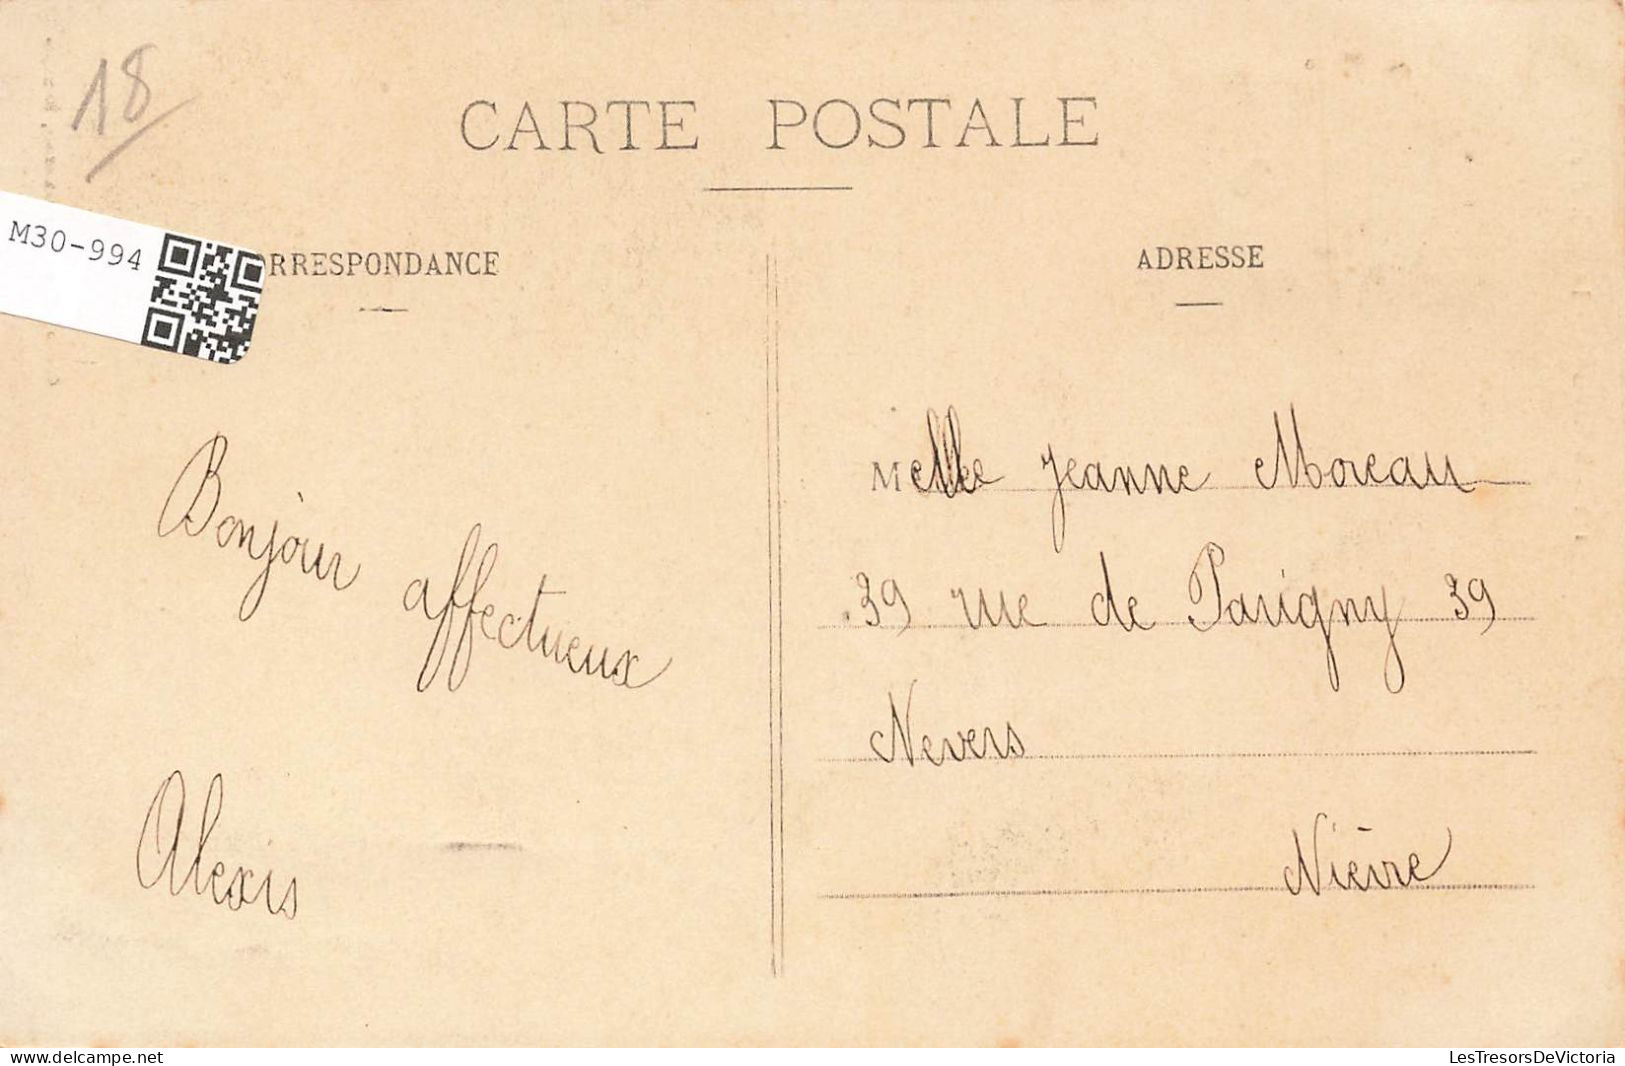 18
CARTE POSTALE
M30-994
RRESPONDANCE
ADRESSE
Bonjour affectueux
Alexis
Melle Jeanne Moreau
39 rue de Parigny 39
Nevers
Nièvre
www.delcampe.net
LesTresorsDeVictoria